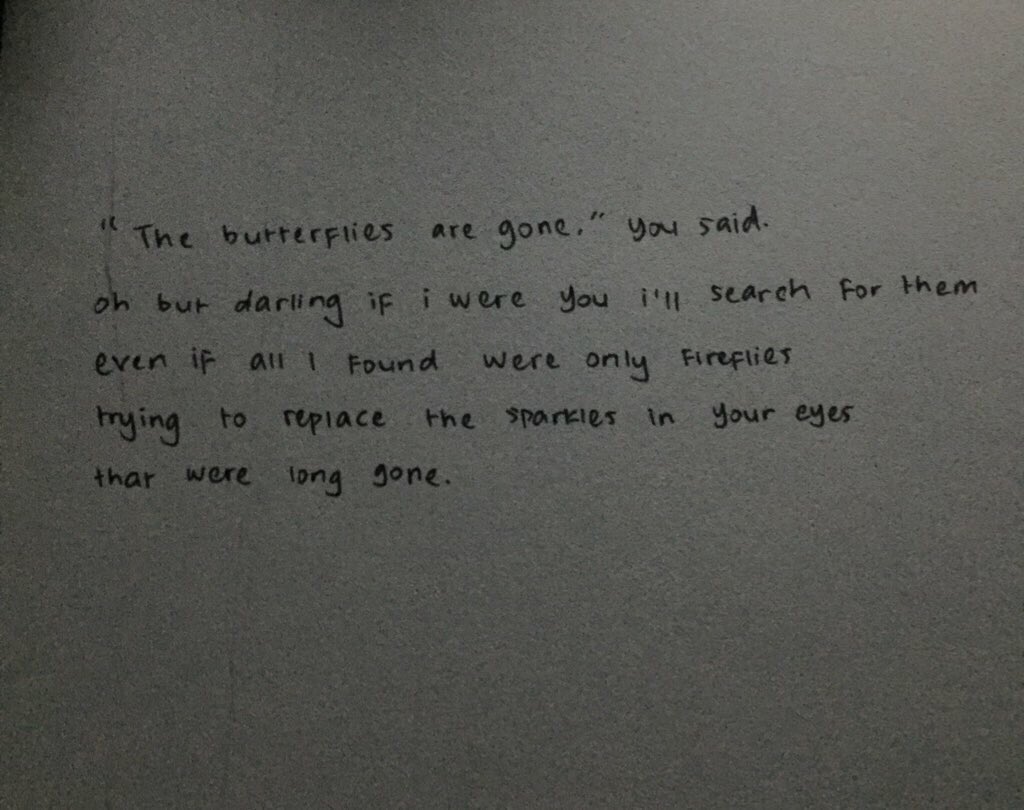 "The butterflies are gone." you said.
oh but darling if i were you i'll search for them
even if all I found were only fireflies
trying to replace the sparkles in your eyes
that were long gone.